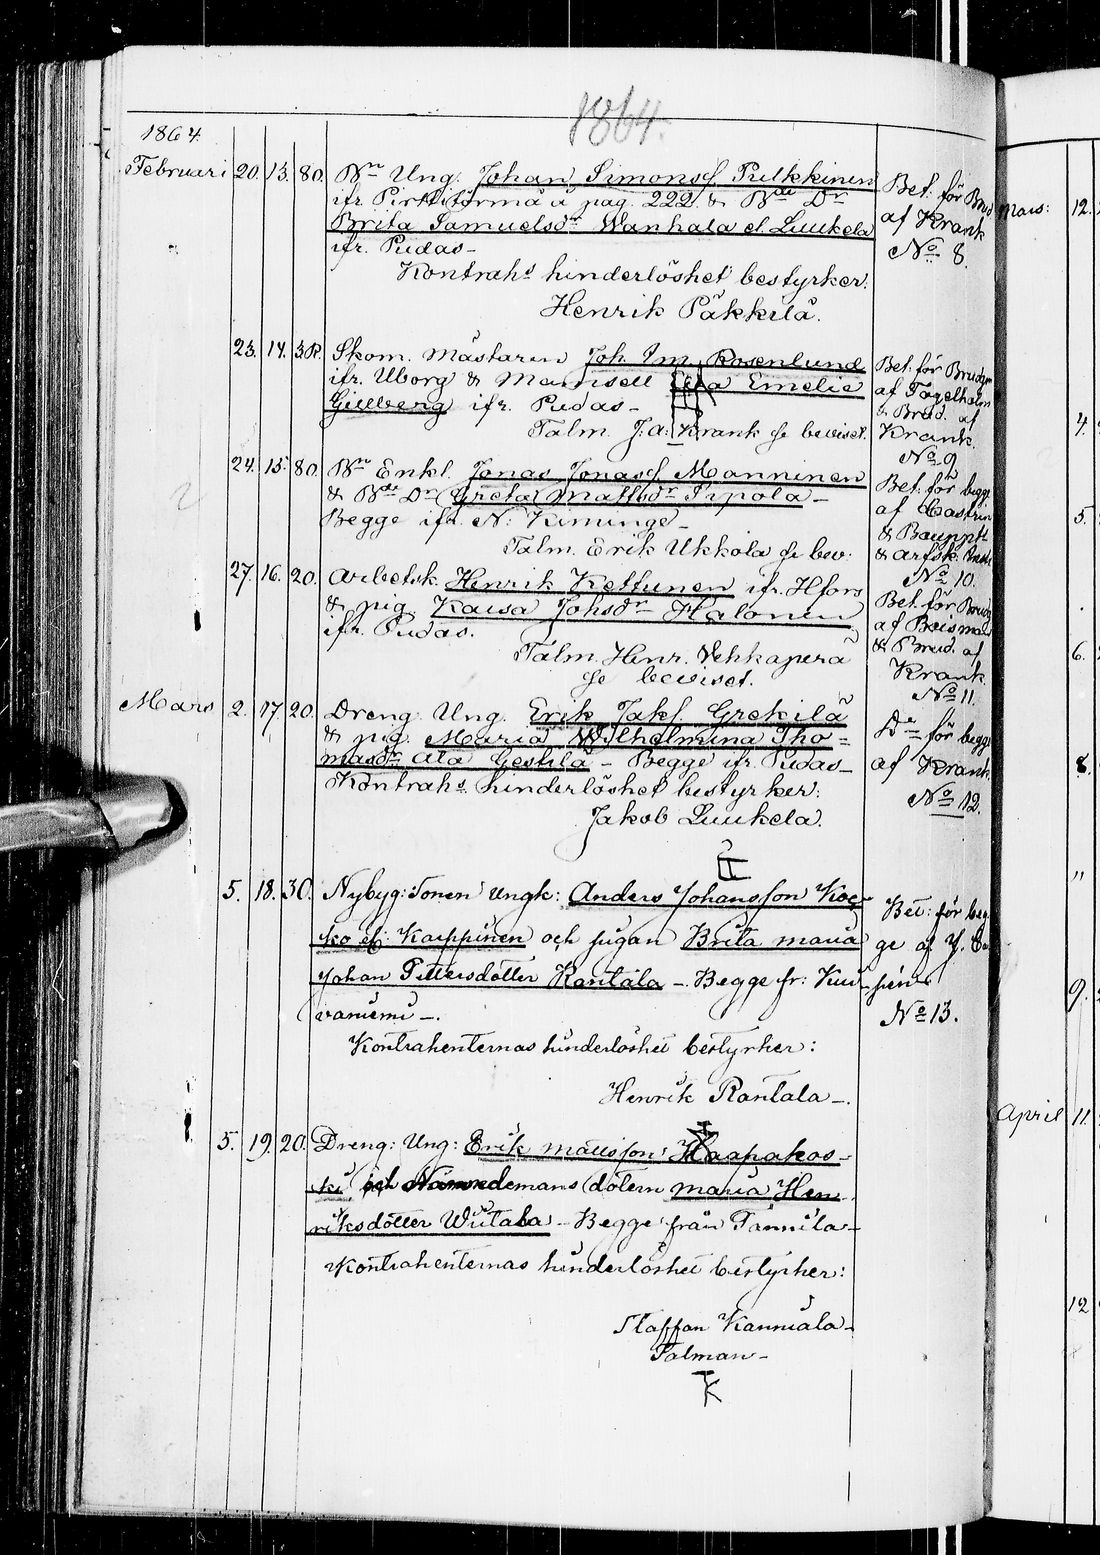 1864.
1864.
Februari 20. 13. 80. Bn Ung. Johan Simonss. Pulkkinen
ifr. å pag. 222. & Bde Dr
Brita Samuelsdr Wanhala el. Luukela
ifr. Pudas -
Kontrahs hinderlöshet bestyrker:
Henrik Päkkilä.
Bet. för Brud
af Krank
No 8.
23. 14. 3R. Skom. Mästaren Joh. Im. Rosenlund
ifr. Uborg & Mamsell Emelie
Gillberg ifr. Pudas -
Talm. J: a: Krank se beviset.
Bet. för Brudgm
af Fogelholm
& Brud. af
Krank.
No 9
24. 15. 80. Bn Enkl. Jonas Jonass. Manninen
& Bde Dr Greta Mattsdr Pipola -
Begge ifr. N: Kiminge -
Talm. Erik Ukkola se bev:
Bet. för begge
af Castrén
&
& 
No 10.
27. 16. 20. Arbetsk. Henrik Kettunen ifr. Hfors
& pig. Kaisa Johsdr Halonen
ifr. Pudas.
Talm. Henr. Vehkaperä
se beviset.
Bet. för Brudg
af
& Brud. af
Krank
No 11.
Mars 2. 17. 20. Dreng Ung. Erik Jaks. Grekilä
& pig. Maria Wilhelmina Tho=
masdr Ala Geskilä - Begge ifr. Pudas -
Kontrahs hinderlöshet bestyrker:
Jakob Luukela.
Do för begge
af Krank.
No 12.
5. 18. 30. Nybyg: Sonen Ungk: Anders Johansson Koc-
ko el: Karppinen och pigan Brita Maria
Johan Pettersdotter Rantala -. Begge fr: Kui-
vaniemi -.
Kontrahenternas hinderlöshet bestyrker:
Henrik Rantala -.
Bet: för beg-
ge af J.
No 13.
5. 19. 20. Dreng: Ung: Erik Mattsson Haapakos-
ki och Nämndemans dotern Maria Hen-
riksdotter Wiitala - Begge från Tannila -
Kontrahenternas hinderlöshet bestyrker:
Staffan Kanniala -
Talman -
K
Mars: 12.
4.
5.
6.
8.
"
9.
April 11.
12